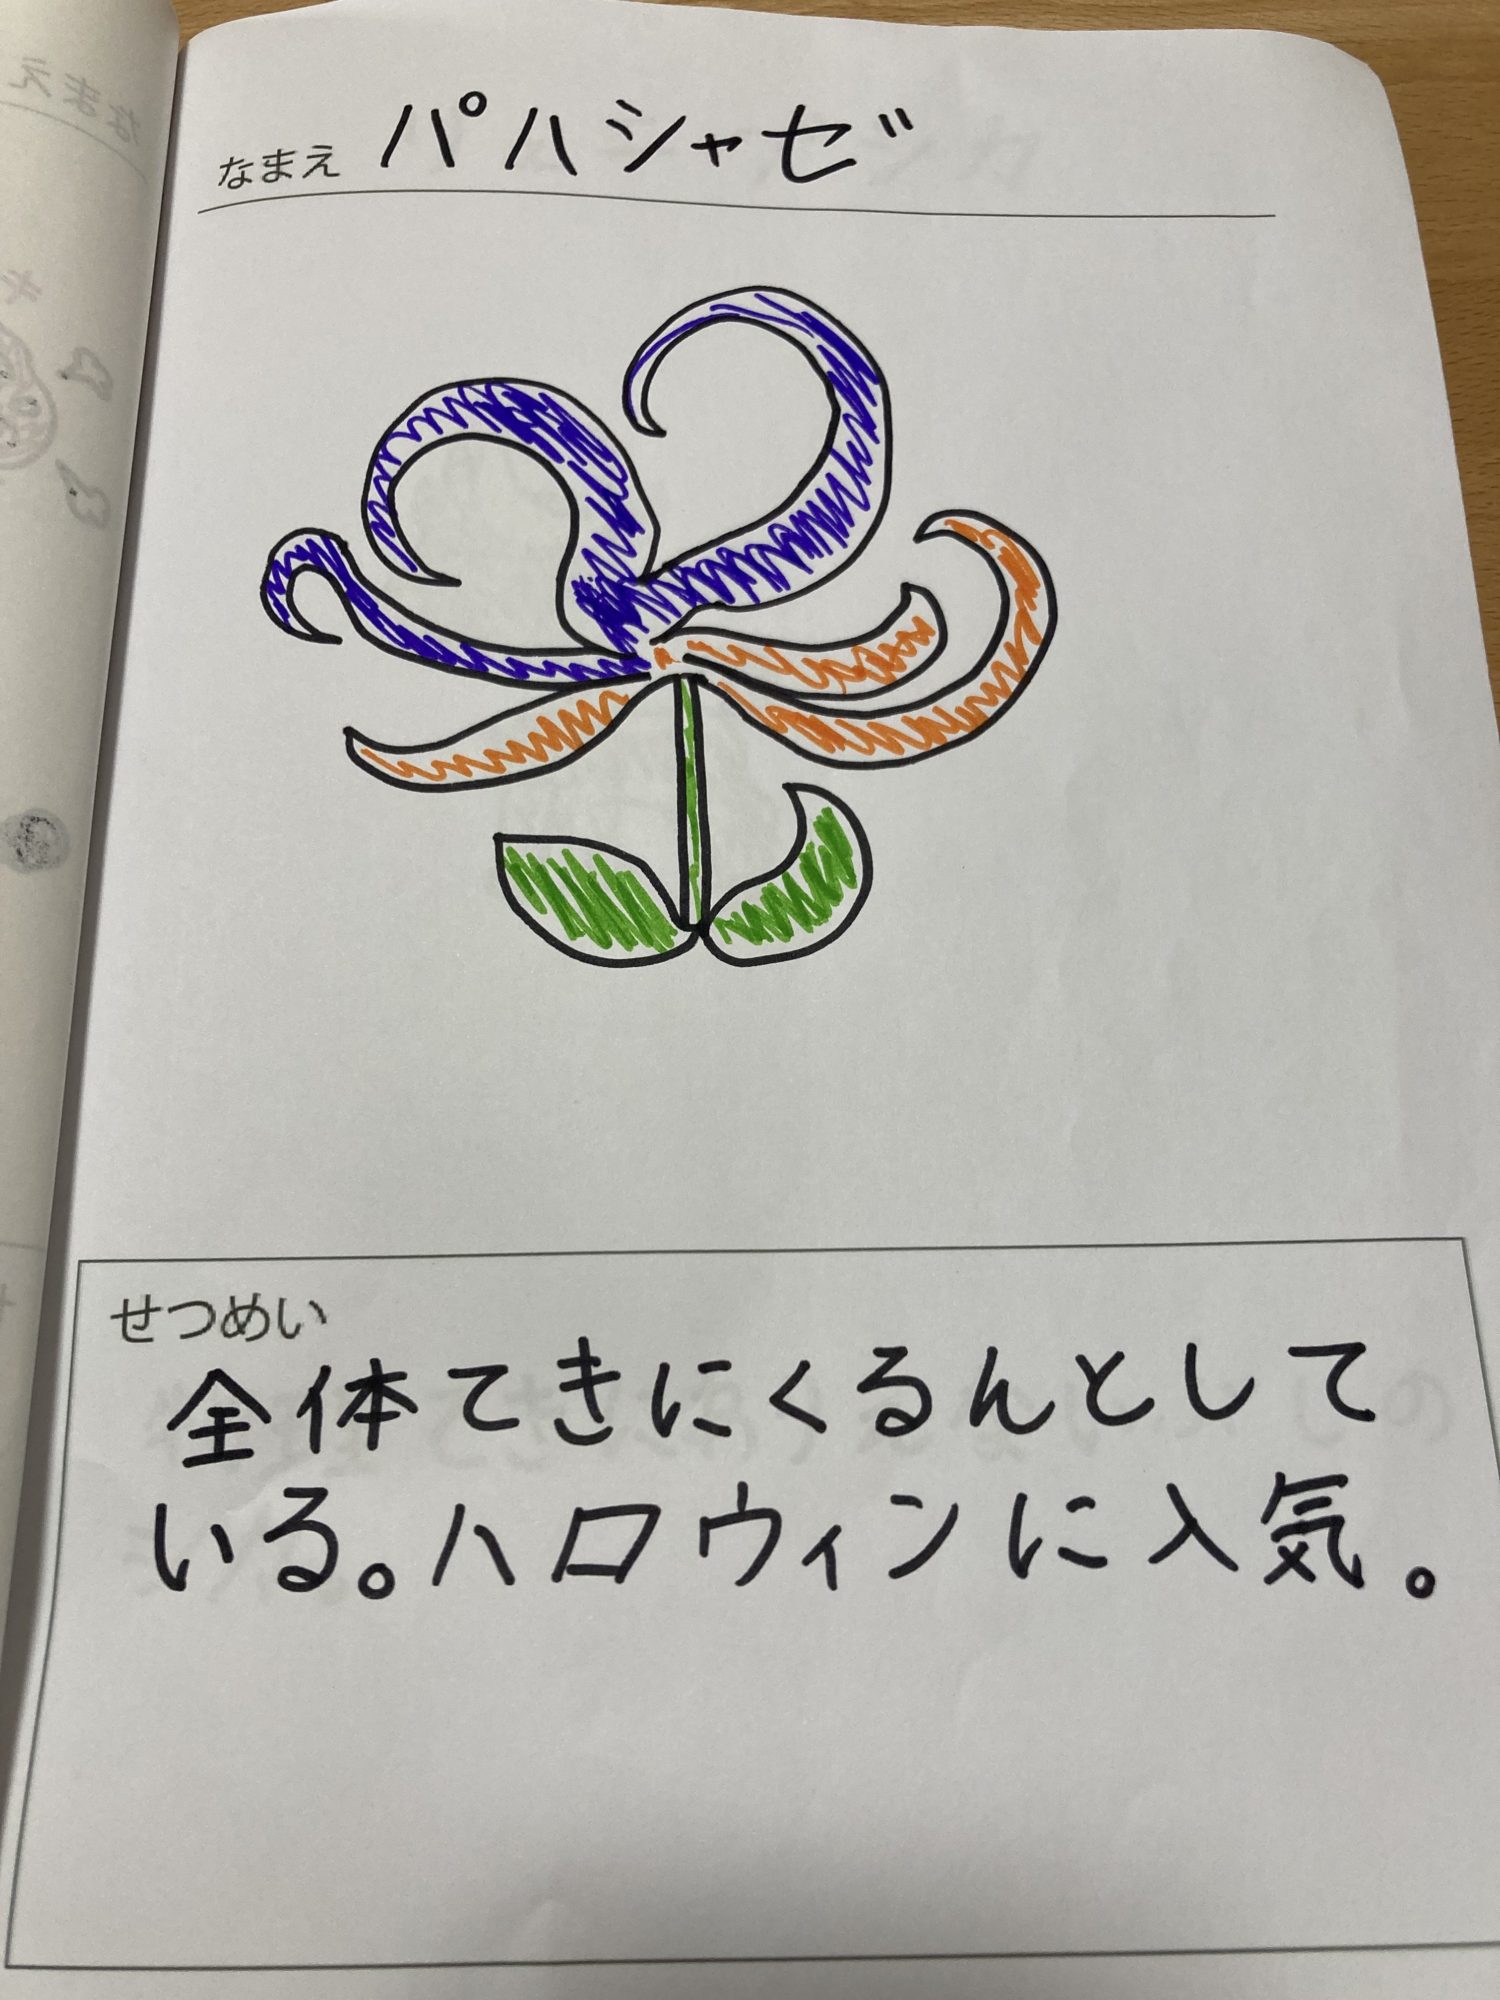 なまえ パハシャゼ
せつめい
全体てきにくるんとして
いる。ハロウィンに人気。